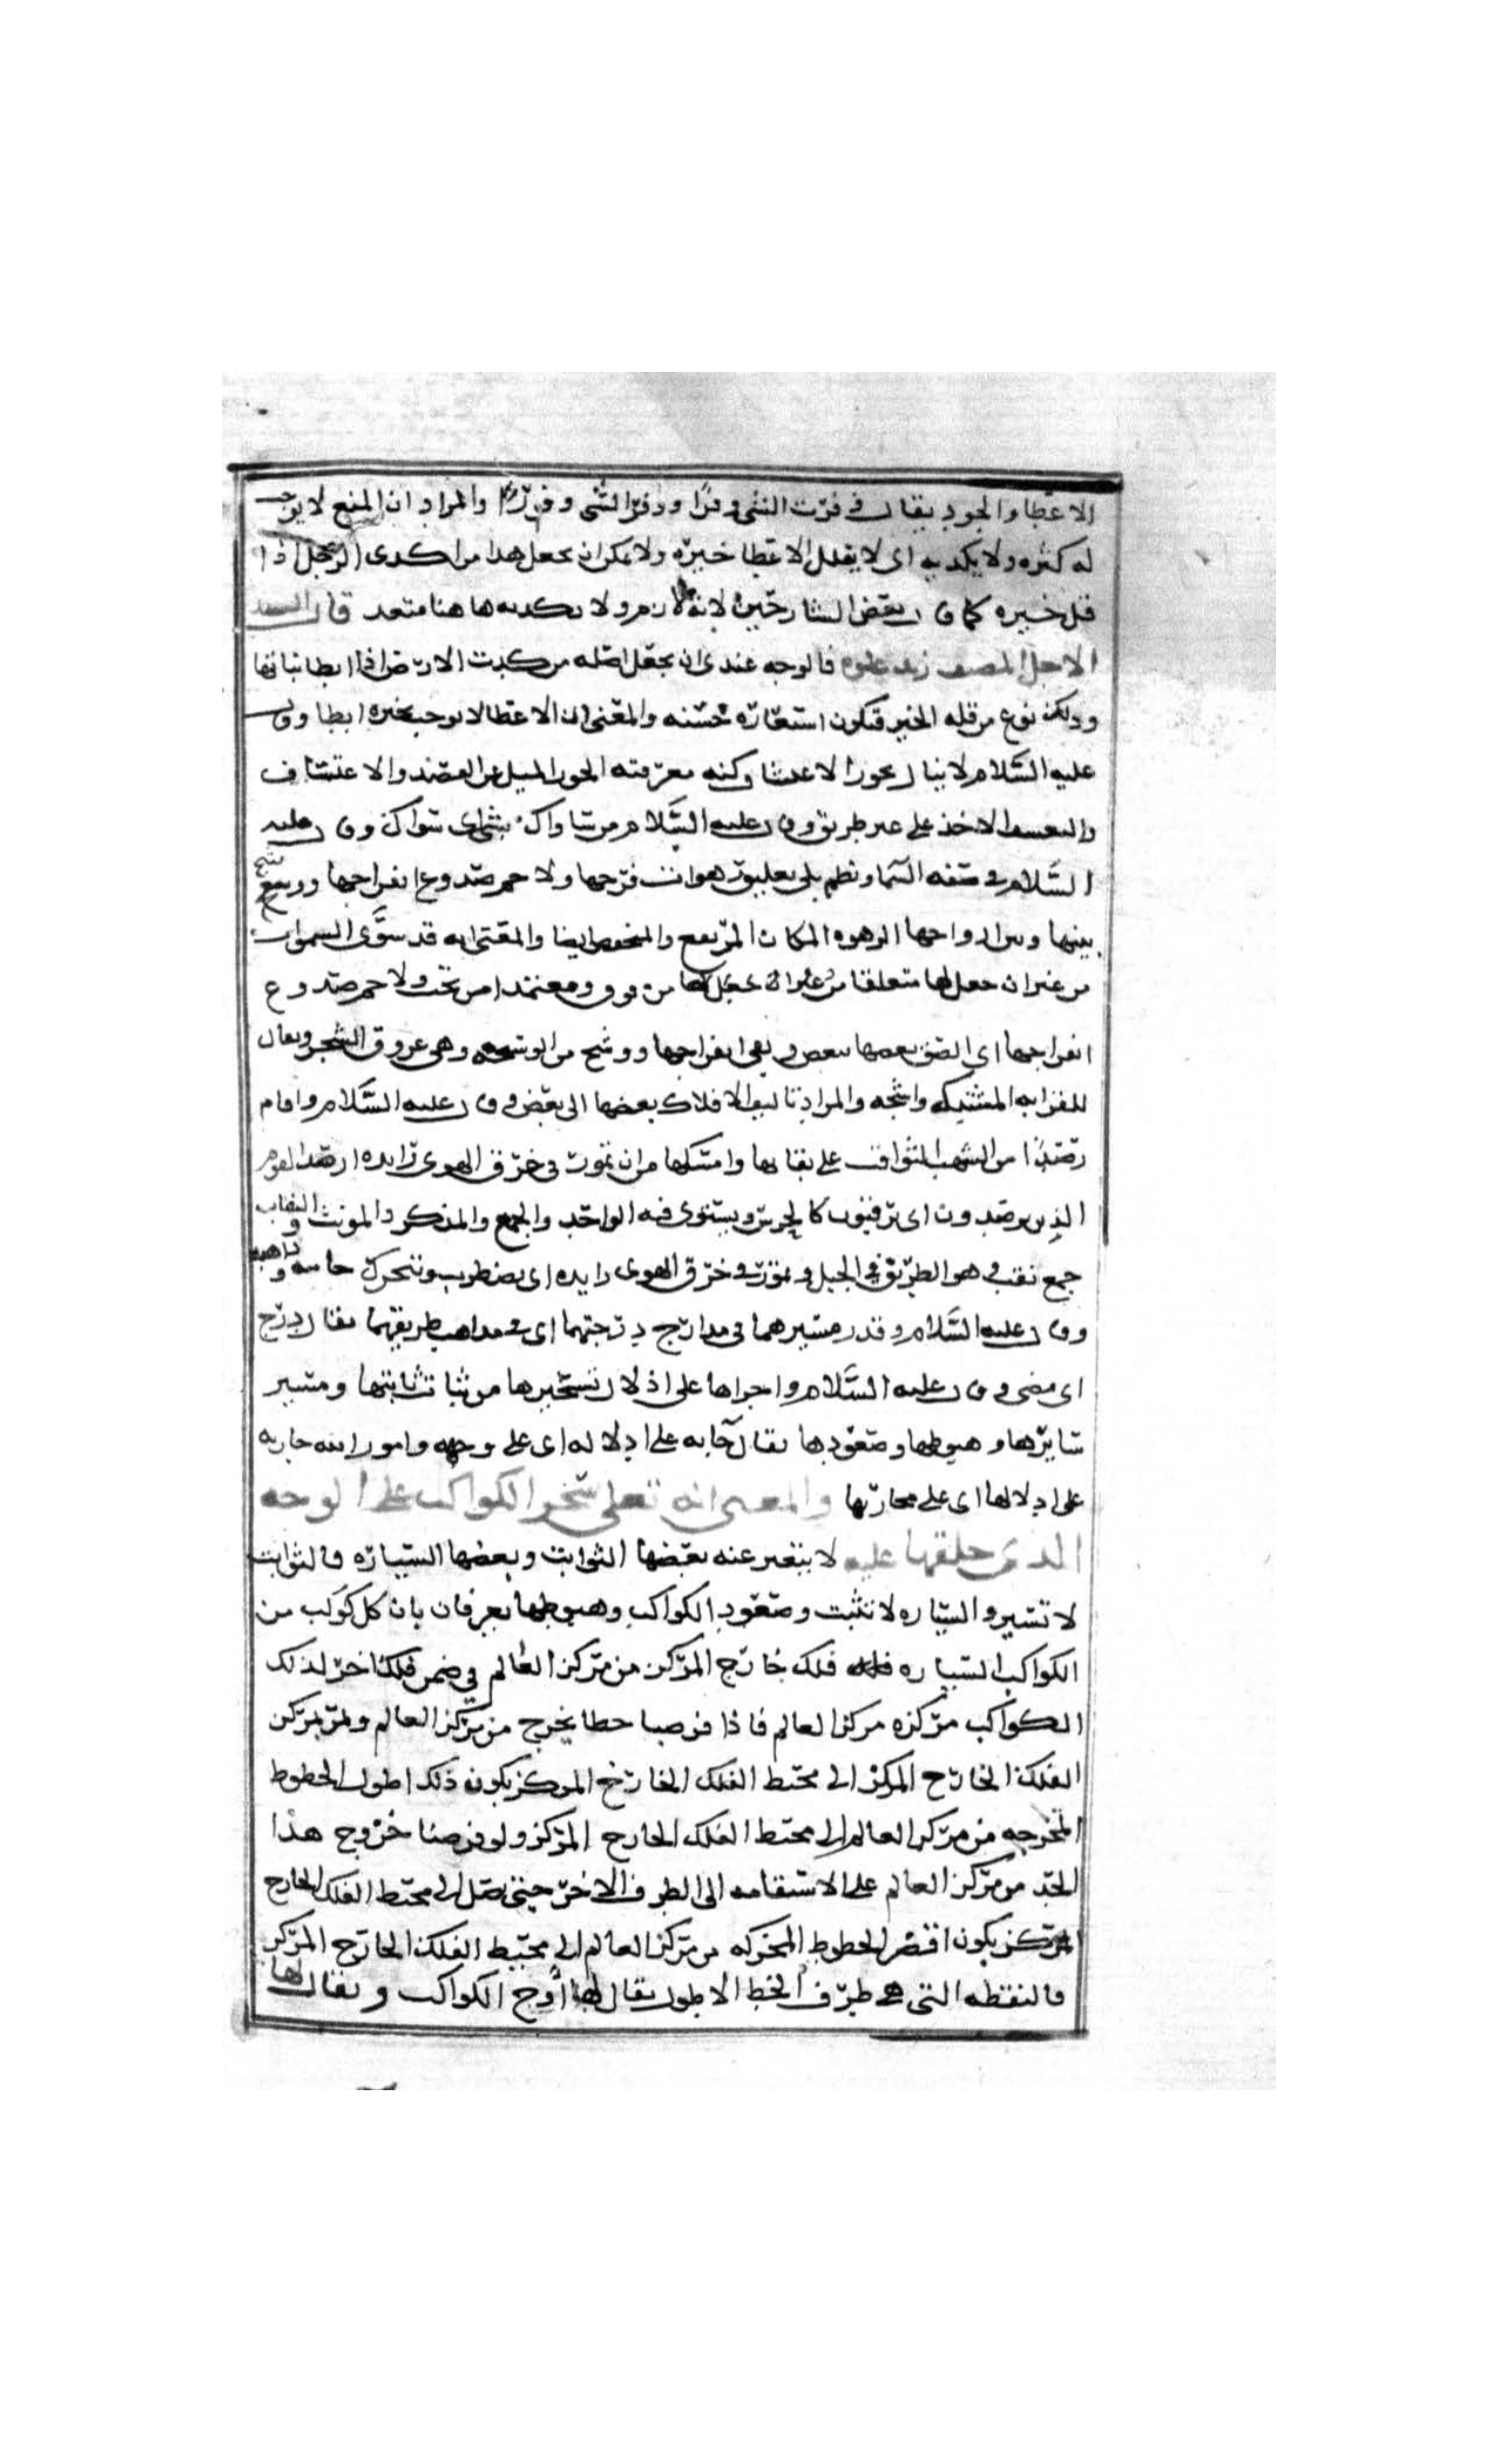 الاعطا والجود يقال وفرت الشي وفرا ووفر الشي وفورا والمراد ان المنع لا يوجب
له كثره ولا يكديه اى لا يقلل الاعطا خيره ولا يمكن ان يجعل هذا من اكدى الرجل اذا
قل خيره كما قال بعض الشارحين لانه لازم ولا يكديه هاهنا متعد قال السيد
الاجل المصنف فالوجه عندى ان يجعل اصله من كدت الارض اذا ابطا نباتها
وذلك نوع من قله الخير فتكون استعارة حسنه والمعنى ان الاعطا لا يوجب بخيره ابطا وقال
عليه السلام لا ينال بجور الاعتساف كنه معرفته الجور الميل عن القصد والاعتساف
والتعسف الاخذ على غير طريق وقال عليه السلام من تساوك مشى اى تسواك وقال عليه
السلام في صفه السما ونظم بلى تعليق رهوات فرجها ولاحم صدوع انفراجها ووشج
بينها وبين ازواجها الرهوه المكان المرتفع والمنخفض ايضا والمعنى انه قد سوى السموات
من غير ان جعل لها متعلقا من غير ان يجعل لها من فوق ومعتمدا من تحت ولاحم صدوع
انفراجها اى الصق بعضها ببعض ونفى انفراجها ووشج من الوشيجه وهى عروق الشجر ويقال
للقرابه المشتبكه واشجه والمراد تاليف الافلاك بعضها الى بعض وقال عليه السلام واقام
رصدا من الشهب الثواقب على نقابها وامسكها من ان تمور في خرق الهوى زايده الرصد القوم
الذين يرصدون اى يرقبون كالحرس ويستوى فيه الواحد والجمع والمذكر والمونث والنقاب
جمع نقب وهو الطريق في الجبل وتمور في خرق الهوى زايده اى يضطرب وتتحرك جاييه وذاهبه
وقال عليه السلام وقدر مسيرهما في مدارج درجتهما اى في مذاهب طريقهما يقال درج
اى مضى وقال عليه السلام واجراها على اذلال تسخيرها من ثبات ثابتها ومسير
سايرها وهبوطها وصعودها يقال جا به على اذلاله اى على وجهه وامور الله جاريه
على اذلالها اى على مجاريها والمعنى انه تعلى سخر الكواكب على الوجه
الذى خلقها عليه لا يتغير عنه بعضها الثوابت وبعضها السيارة فالثوابت
لا تسير والسياره لا تثبت وصعود الكواكب وهبوطها يعرفان بان كل كوكب من
الكواكب السياره فله فلك خارج المركز من مركز العالم في ضمن فلك اخر لذلك
الكواكب مركزه مركز العالم فاذا فرضنا خطا يخرج من مركز العالم ويمر بمركز
الفلك الخارج المركز الى محيط الفلك الخارج المركز يكون ذلك اطول الخطوط
المخرجه من مركز العالم الى محيط الفلك الخارج المركز ولو فرضنا خروج هذا
الخد من مركز العالم على الاستقامه الى الطرف الاخر حيتى يصل الى محيط الفلك الخارج
المركز يكون اقصر الخطوط المخركه من مركز العالم الى محيط الفلك الخارج المركز
فالنقطه التى هى طرف الخط الاطول يقال لها اوج الكواكب ويقال لها